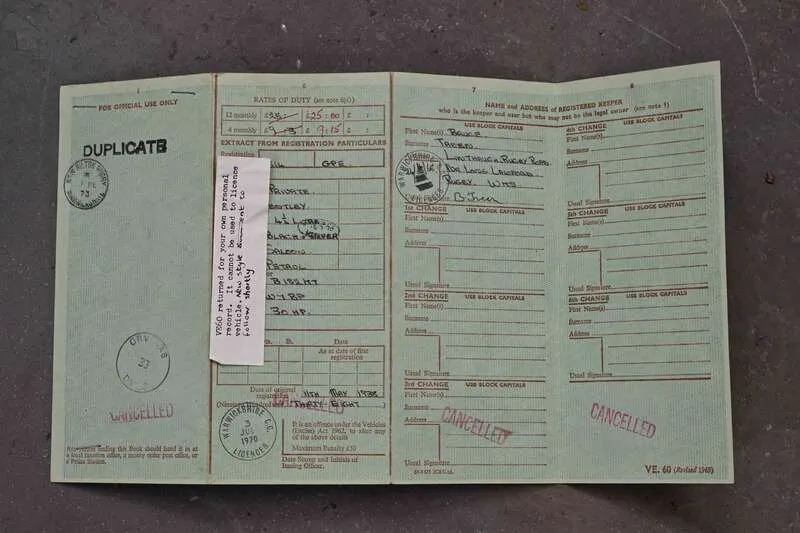 FOR OFFICIAL USE ONLY
DUPLICATE
73
CANCELLED
finding this Book should hand it in at
a local taxation office, a money order post office, or
a Police Station.
6
RATES OF DUTY (see note 6(i))
12 monthly £ £25:00 £ :
4 monthly £ £ 9:15 £ :
EXTRACT FROM REGISTRATION PARTICULARS
Registration
GPE
PRIVATE
BENTLEY
BLACK & SILVER
SALOON
PETROL
B158MT
30 HP.
VE60 returned for your own personal
record. It cannot be used to licence
vehicle. New style
follow shortly
Date
As at date of first
registration
Date of original
registration 11TH MAY 1938
THIRTY EIGHT
CANCELLED
WARWICKSHIRE C.C.
3
1970
LICENCES
It is an offence under the Vehicles
(Excise) Act 1962, to alter any
of the above details
Maximum Penalty £50
Date Stamp and Initials of
Issuing Officer.
7
NAME and ADDRESS of REGISTERED KEEPER
who is the keeper and user but who may not be the legal owner (see note 1)
USE BLOCK CAPITALS
First Name(s)
Surname
RUGBY ROAD
LONG LAWFORD
RUGBY
WARWICKSHIRE
1st CHANGE USE BLOCK CAPITALS
First Name(s)
Surname
Address
Usual Signature
2nd CHANGE USE BLOCK CAPITALS
First Name(s)
Surname
Address
Usual Signature
3rd CHANGE USE BLOCK CAPITALS
First Name(s)
Surname
Address
CANCELLED
Usual Signature
8
4th CHANGE USE BLOCK CAPITALS
First Name(s)
Surname
Address
Usual Signature
5th CHANGE USE BLOCK CAPITALS
First Name(s)
Surname
Address
Usual Signature
6th CHANGE USE BLOCK CAPITALS
First Name(s)
Surname
Address
Usual Signature
CANCELLED
VE. 60 (Revised 1968)